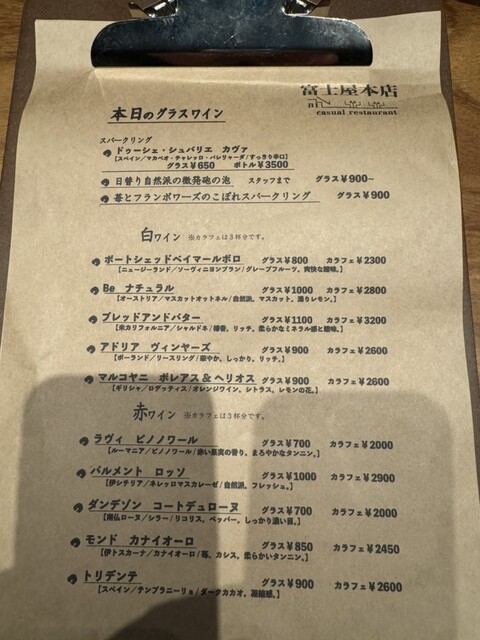 富士屋本店
casual restaurant
本日のグラスワイン
スパークリング
ドゥーシェ・シュバリエ カヴァ
【スペイン/マカベオ・チャレッロ・パレリャーダ/すっきり辛口】
グラス¥650 ボトル¥3500
日替り自然派の微発砲の泡 スタッフまで グラス¥900~
苺とフランボワーズのこぼれスパークリング グラス¥900
白ワイン ※カラフェは3杯分です。
ポートシェッドベイマールボロ グラス¥800 カラフェ¥2300
【ニュージーランド/ソーヴィニヨンブラン/グレープフルーツ、爽快な酸味。】
Be ナチュラル グラス¥1000 カラフェ¥2800
【オーストリア/マスカットオットネル/自然派、マスカット、濁りレモン。】
ブレッドアンドバター グラス¥1100 カラフェ¥3200
【米カリフォルニア/シャルドネ/樽香、リッチ、柔らかなミネラル感と酸味。】
アドリア ヴィンヤーズ グラス¥900 カラフェ¥2600
【ポーランド/リースリング/華やか、しっかり、リッチ。】
マルコヤニ ボレアス&ヘリオス グラス¥900 カラフェ¥2600
【ギリシャ/ロデッティス/オレンジワイン、シトラス、レモンの花。】
赤ワイン ※カラフェは3杯分です。
ラヴィ ピノノワール グラス¥700 カラフェ¥2000
【ルーマニア/ピノノワール/赤い果実の香り、まろやかなタンニン。】
パルメント ロッソ グラス¥1000 カラフェ¥2900
【伊シチリア/ネレッロマスカレーゼ/自然派、フレッシュ。】
ダンデゾン コートデュローヌ グラス¥700 カラフェ¥2000
【南仏ローヌ/シラー/リコリス、ペッパー、しっかり濃い目。】
モンド カナイオーロ グラス¥850 カラフェ¥2450
【伊トスカーナ/カナイオーロ/苺、カシス、柔らかいタンニン。】
トリデンテ グラス¥900 カラフェ¥2600
【スペイン/テンプラニーリョ/ダークカカオ、凝縮感。】